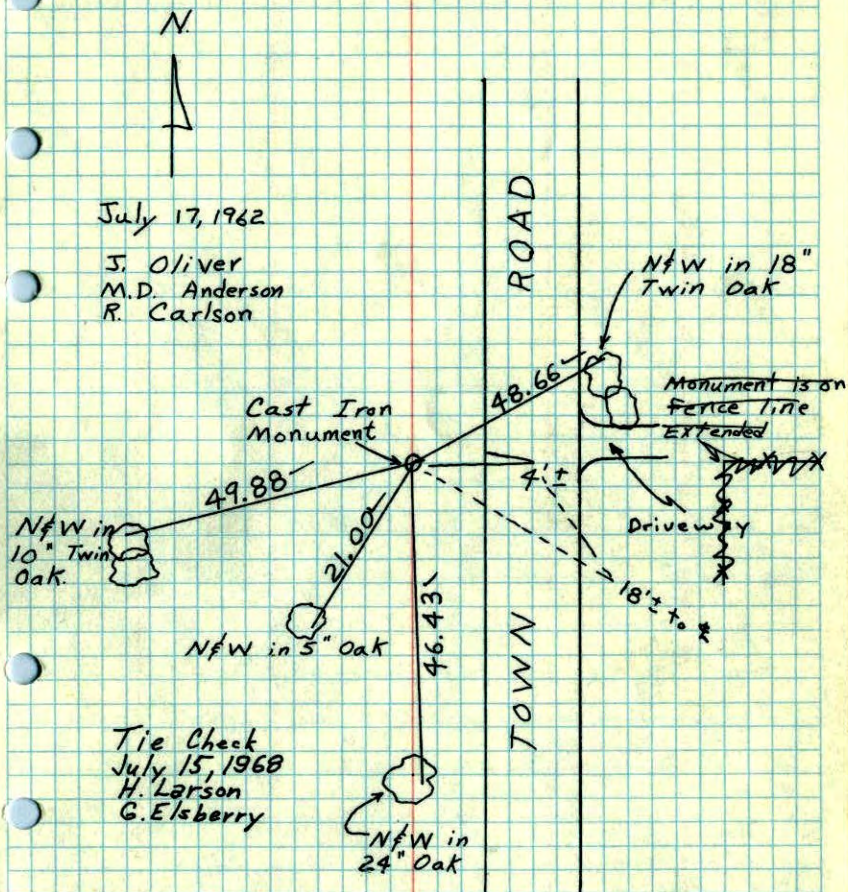 N.
July 17, 1962
J. Oliver
M.D. Anderson
R. Carlson
ROAD
N&W in 18"
Twin Oak
48.66
Monument is on
Fence line
Extended
Cast Iron
Monument
49.88
4'±
Driveway
N&W in
10" Twin
Oak.
21.00
18'± to ℄
46.43
N&W in 5" Oak
TOWN
Tie Check
July 15, 1968
H. Larson
G. Elsberry
N&W in
24" Oak